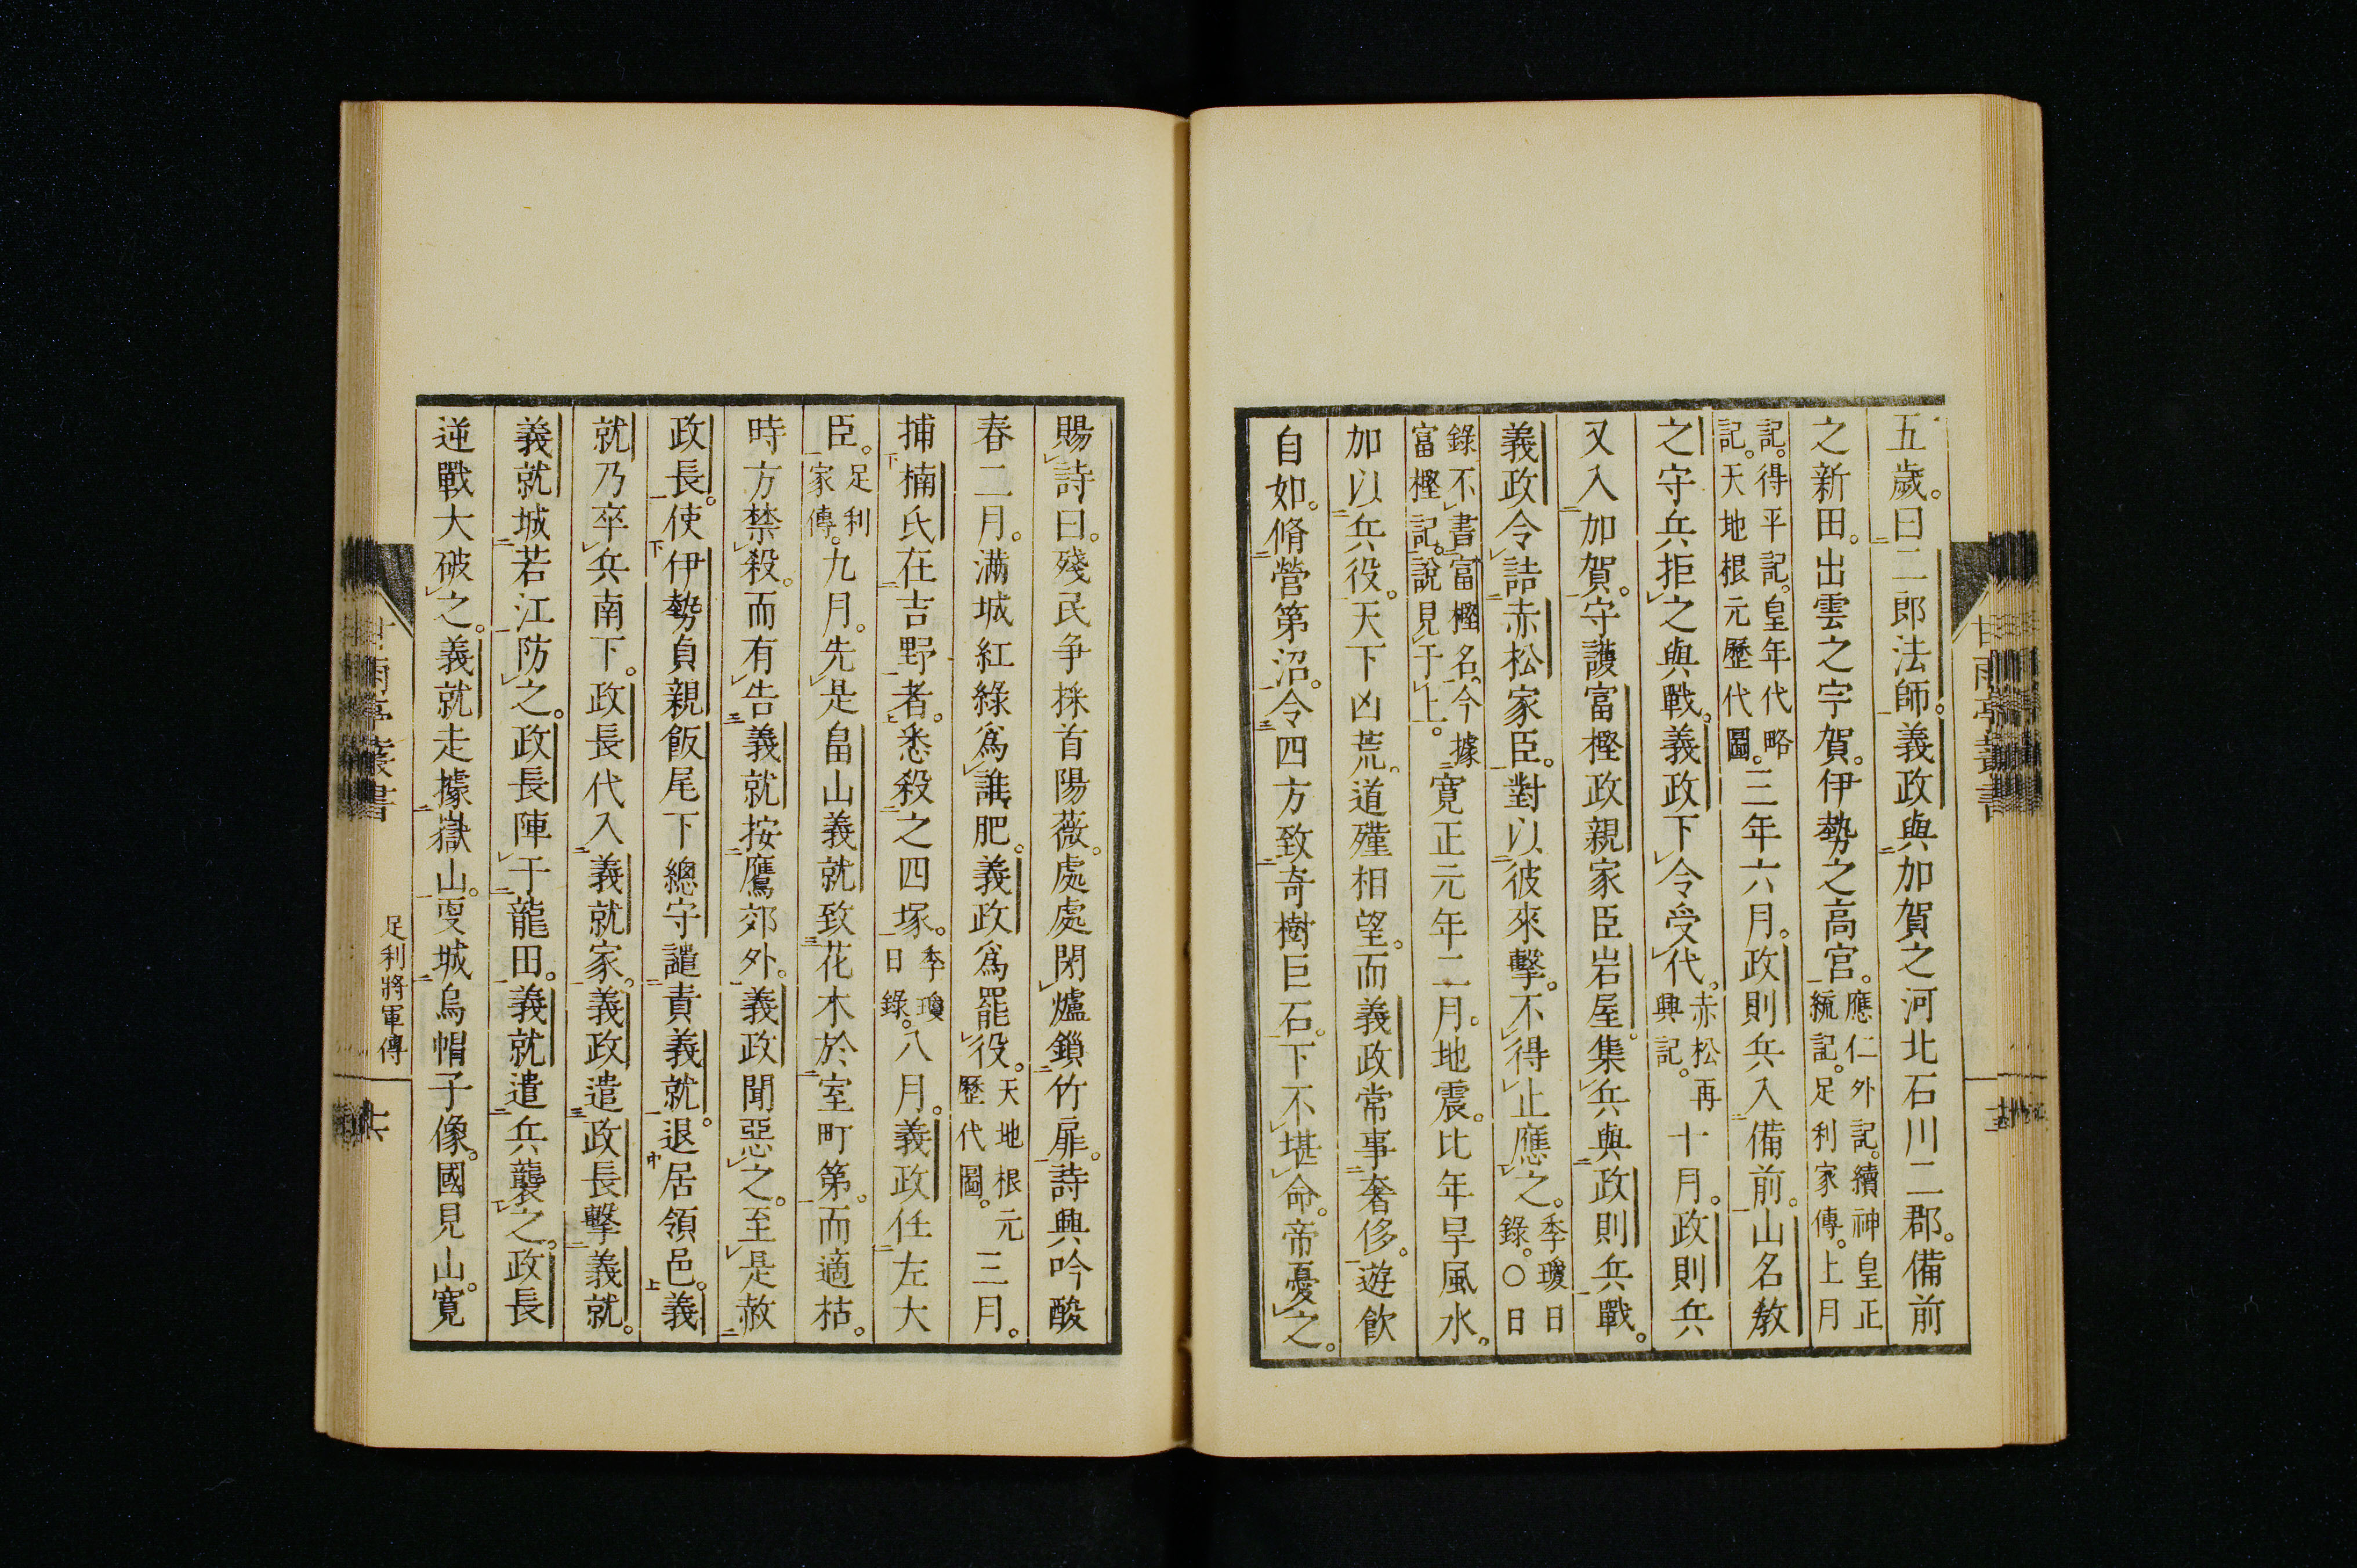 五歲。曰二郎法師。義政與加賀之河北石川二郡。備前
之新田。出雲之宇賀。伊勢之高宮。應仁外記。續神皇正統記。足利家傳。上月
記。得平記。皇年代略記。天地根元歷代圖。三年六月。政則兵入備前。山名教
之守兵拒之與戰。義政下令受代。赤松再興記。十月。政則兵
又入加賀。守護富樫政親家臣岩屋集兵與政則兵戰。
義政令詰赤松家臣。對以彼來擊。不得止應之。季瓊日錄。〇日
錄不書富樫名。今據富樫記。說見于上。寬正元年二月。地震。比年旱風水。
加以兵役。天下凶荒。道殣相望。而義政常事奢侈。遊飲
自如。脩營第沼。令四方致奇樹巨石。下不堪命。帝憂之。
賜詩曰。殘民爭採首陽薇。處處閉爐鎖竹扉。詩興吟酸
春二月。滿城紅綠爲誰肥。義政爲罷役。天地根元歷代圖。三月。
捕楠氏在吉野者。悉殺之四塚。季瓊日錄。八月。義政任左大
臣。足利家傳。九月。先是畠山義就致花木於室町第。而適枯。
時方禁殺。而有告義就按鷹郊外。義政聞惡之。至是赦
政長。使伊勢貞親飯尾下總守譴責義就。退居領邑。義
就乃卒兵南下。政長代入義就家。義政遣政長擊義就。
義就城若江防之。政長陣于龍田。義就遣兵襲之。政長
逆戰大破之。義就走據嶽山。更城烏帽子像。國見山。寬
甘雨亭叢書
足利將軍傳